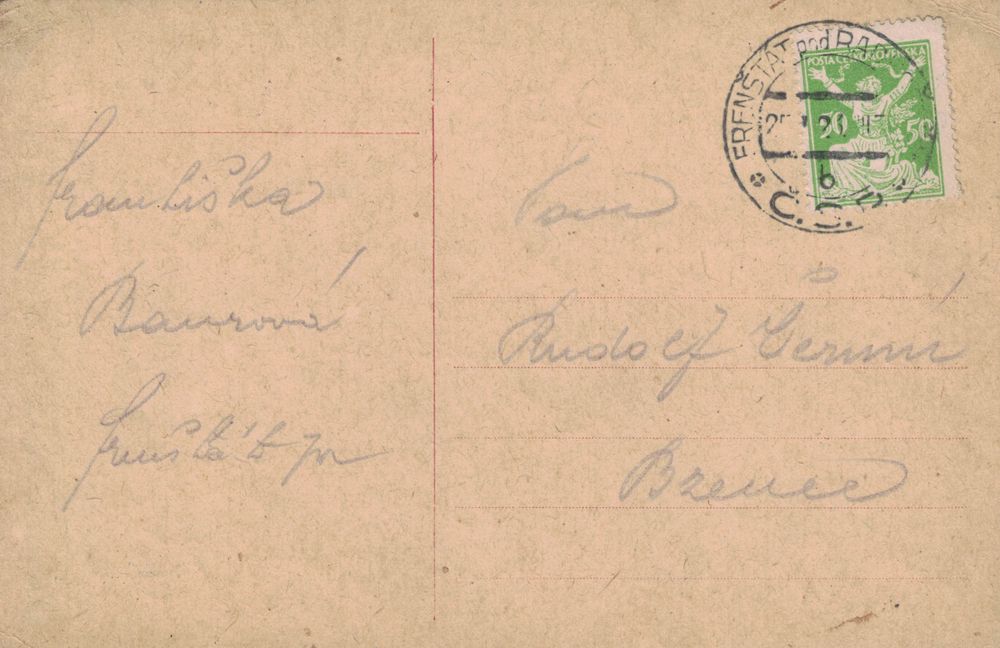 Františka
Baurová
Frenštát pr
Pan
Rudolf Černí
Bzenec
FRENŠTÁT pod RA
Č.S.
6
POSTA ČESKOSLOVENSKÁ
50